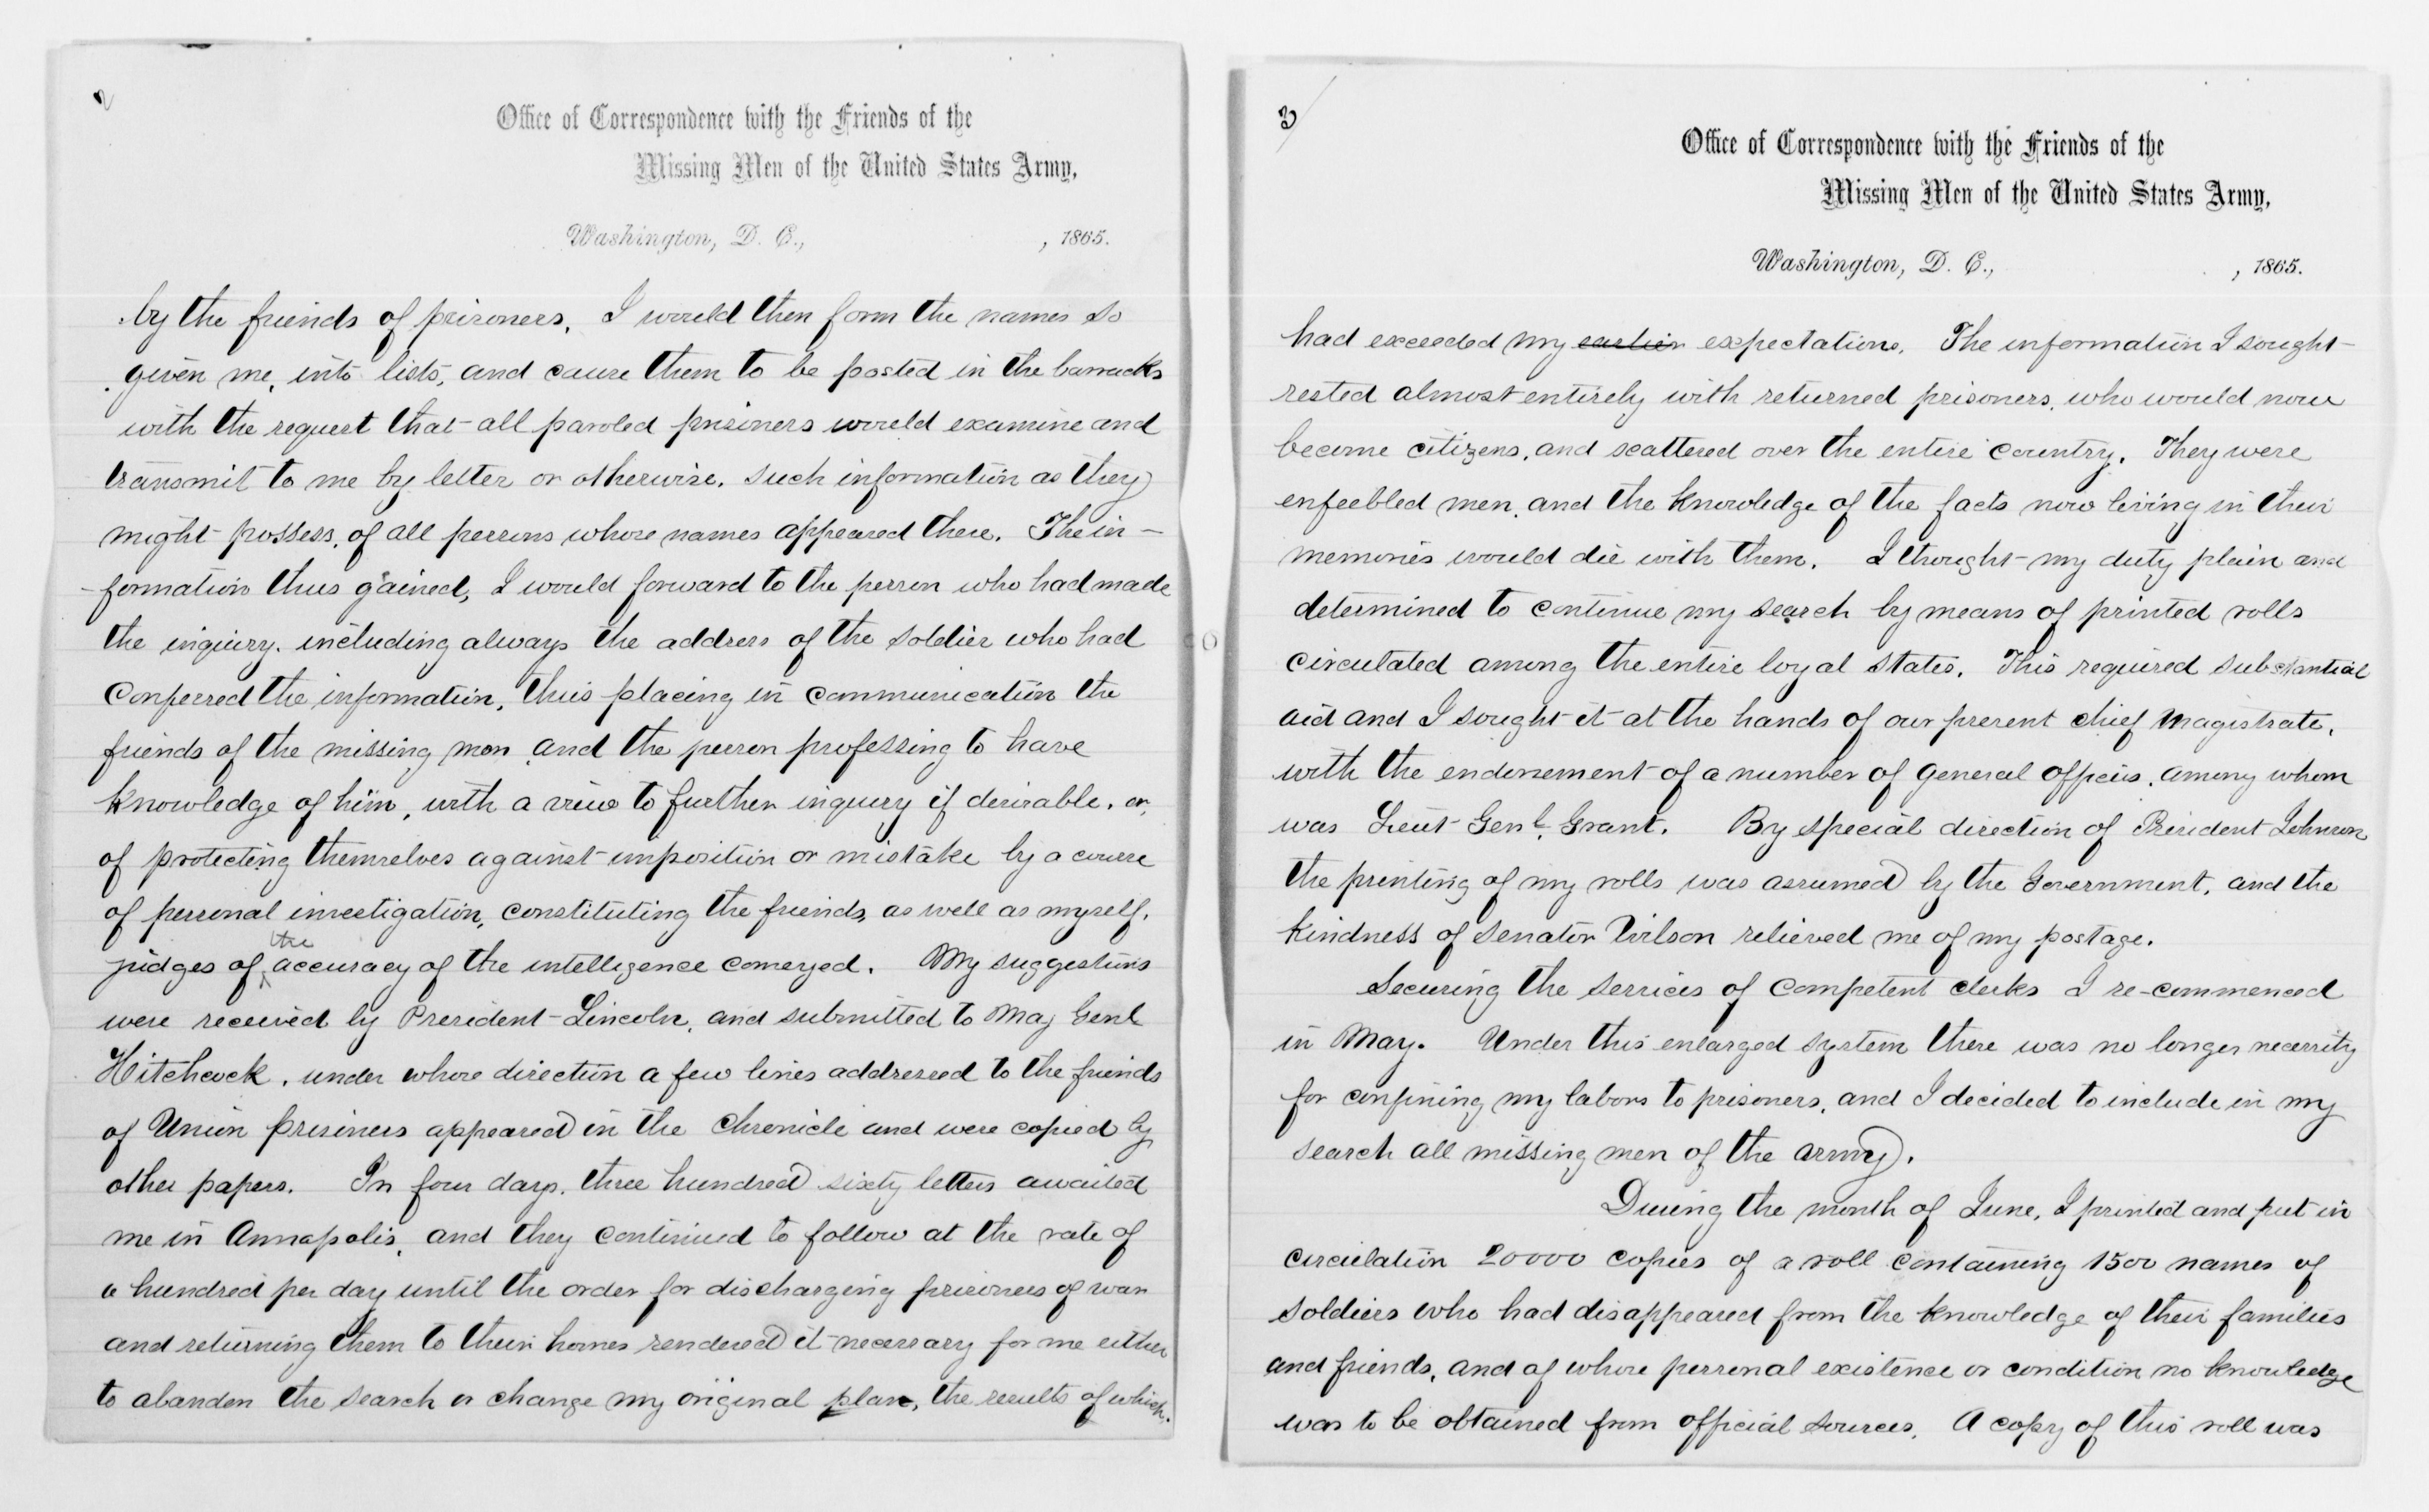 2
Office of Correspondence with the Friends of the
Missing Men of the United States Army,
Washington, D. C., , 1865.
by the friends of prisoners, I would then form the names so
given me, into lists, and cause them to be posted in the barracks
with the request that all paroled prisoners would examine and
transmit to me by letter or otherwise, such information as they
might possess, of all persons whose names appeared there. The in-
-formation thus gained, I would forward to the person who had made
the inquiry, including always the address of the soldier who had
conferred the information, thus placing in communication the
friends of the missing man, and the person professing to have
knowledge of him, with a view to further inquiry if desirable, or,
of protecting themselves against imposition or mistake by a course
of personal investigation, constituting the friends, as well as myself,
judges of the accuracy of the intelligence conveyed. My suggestions
were received by President Lincoln, and submitted to Maj Genl
Hitchcock, under whose direction a few lines addressed to the friends
of Union prisoners appeared in the Chronicle and were copied by
other papers. In four days, three hundred sixty letters awaited
me in Annapolis, and they continued to follow at the rate of
a hundred per day until the order for discharging prisoners of war
and returning them to their homes rendered it necessary for me either
to abandon the search or change my original plan, the results of which
3
Office of Correspondence with the Friends of the
Missing Men of the United States Army,
Washington, D. C., , 1865.
had exceeded my earlier expectations. The information I sought
rested almost entirely with returned prisoners, who would now
become citizens, and scattered over the entire country. They were
enfeebled men, and the knowledge of the facts now living in their
memories would die with them. I thought my duty plain and
determined to continue my search by means of printed rolls
circulated among the entire loyal states. This required substantial
aid and I sought it at the hands of our present chief Magistrate,
with the endorsement of a number of general officers, among whom
was Lieut Genl. Grant. By special direction of President Johnson
the printing of my rolls was assumed by the Government, and the
kindness of Senator Wilson relieved me of my postage.
Securing the services of competent clerks I re-commenced
in May. Under this enlarged system there was no longer necessity
for confining my labors to prisoners, and I decided to include in my
search all missing men of the army.
During the month of June, I printed and put in
circulation 20000 copies of a roll containing 1500 names of
soldiers who had disappeared from the knowledge of their families
and friends, and of whose personal existence or condition no knowledge
was to be obtained from official sources. A copy of this roll was